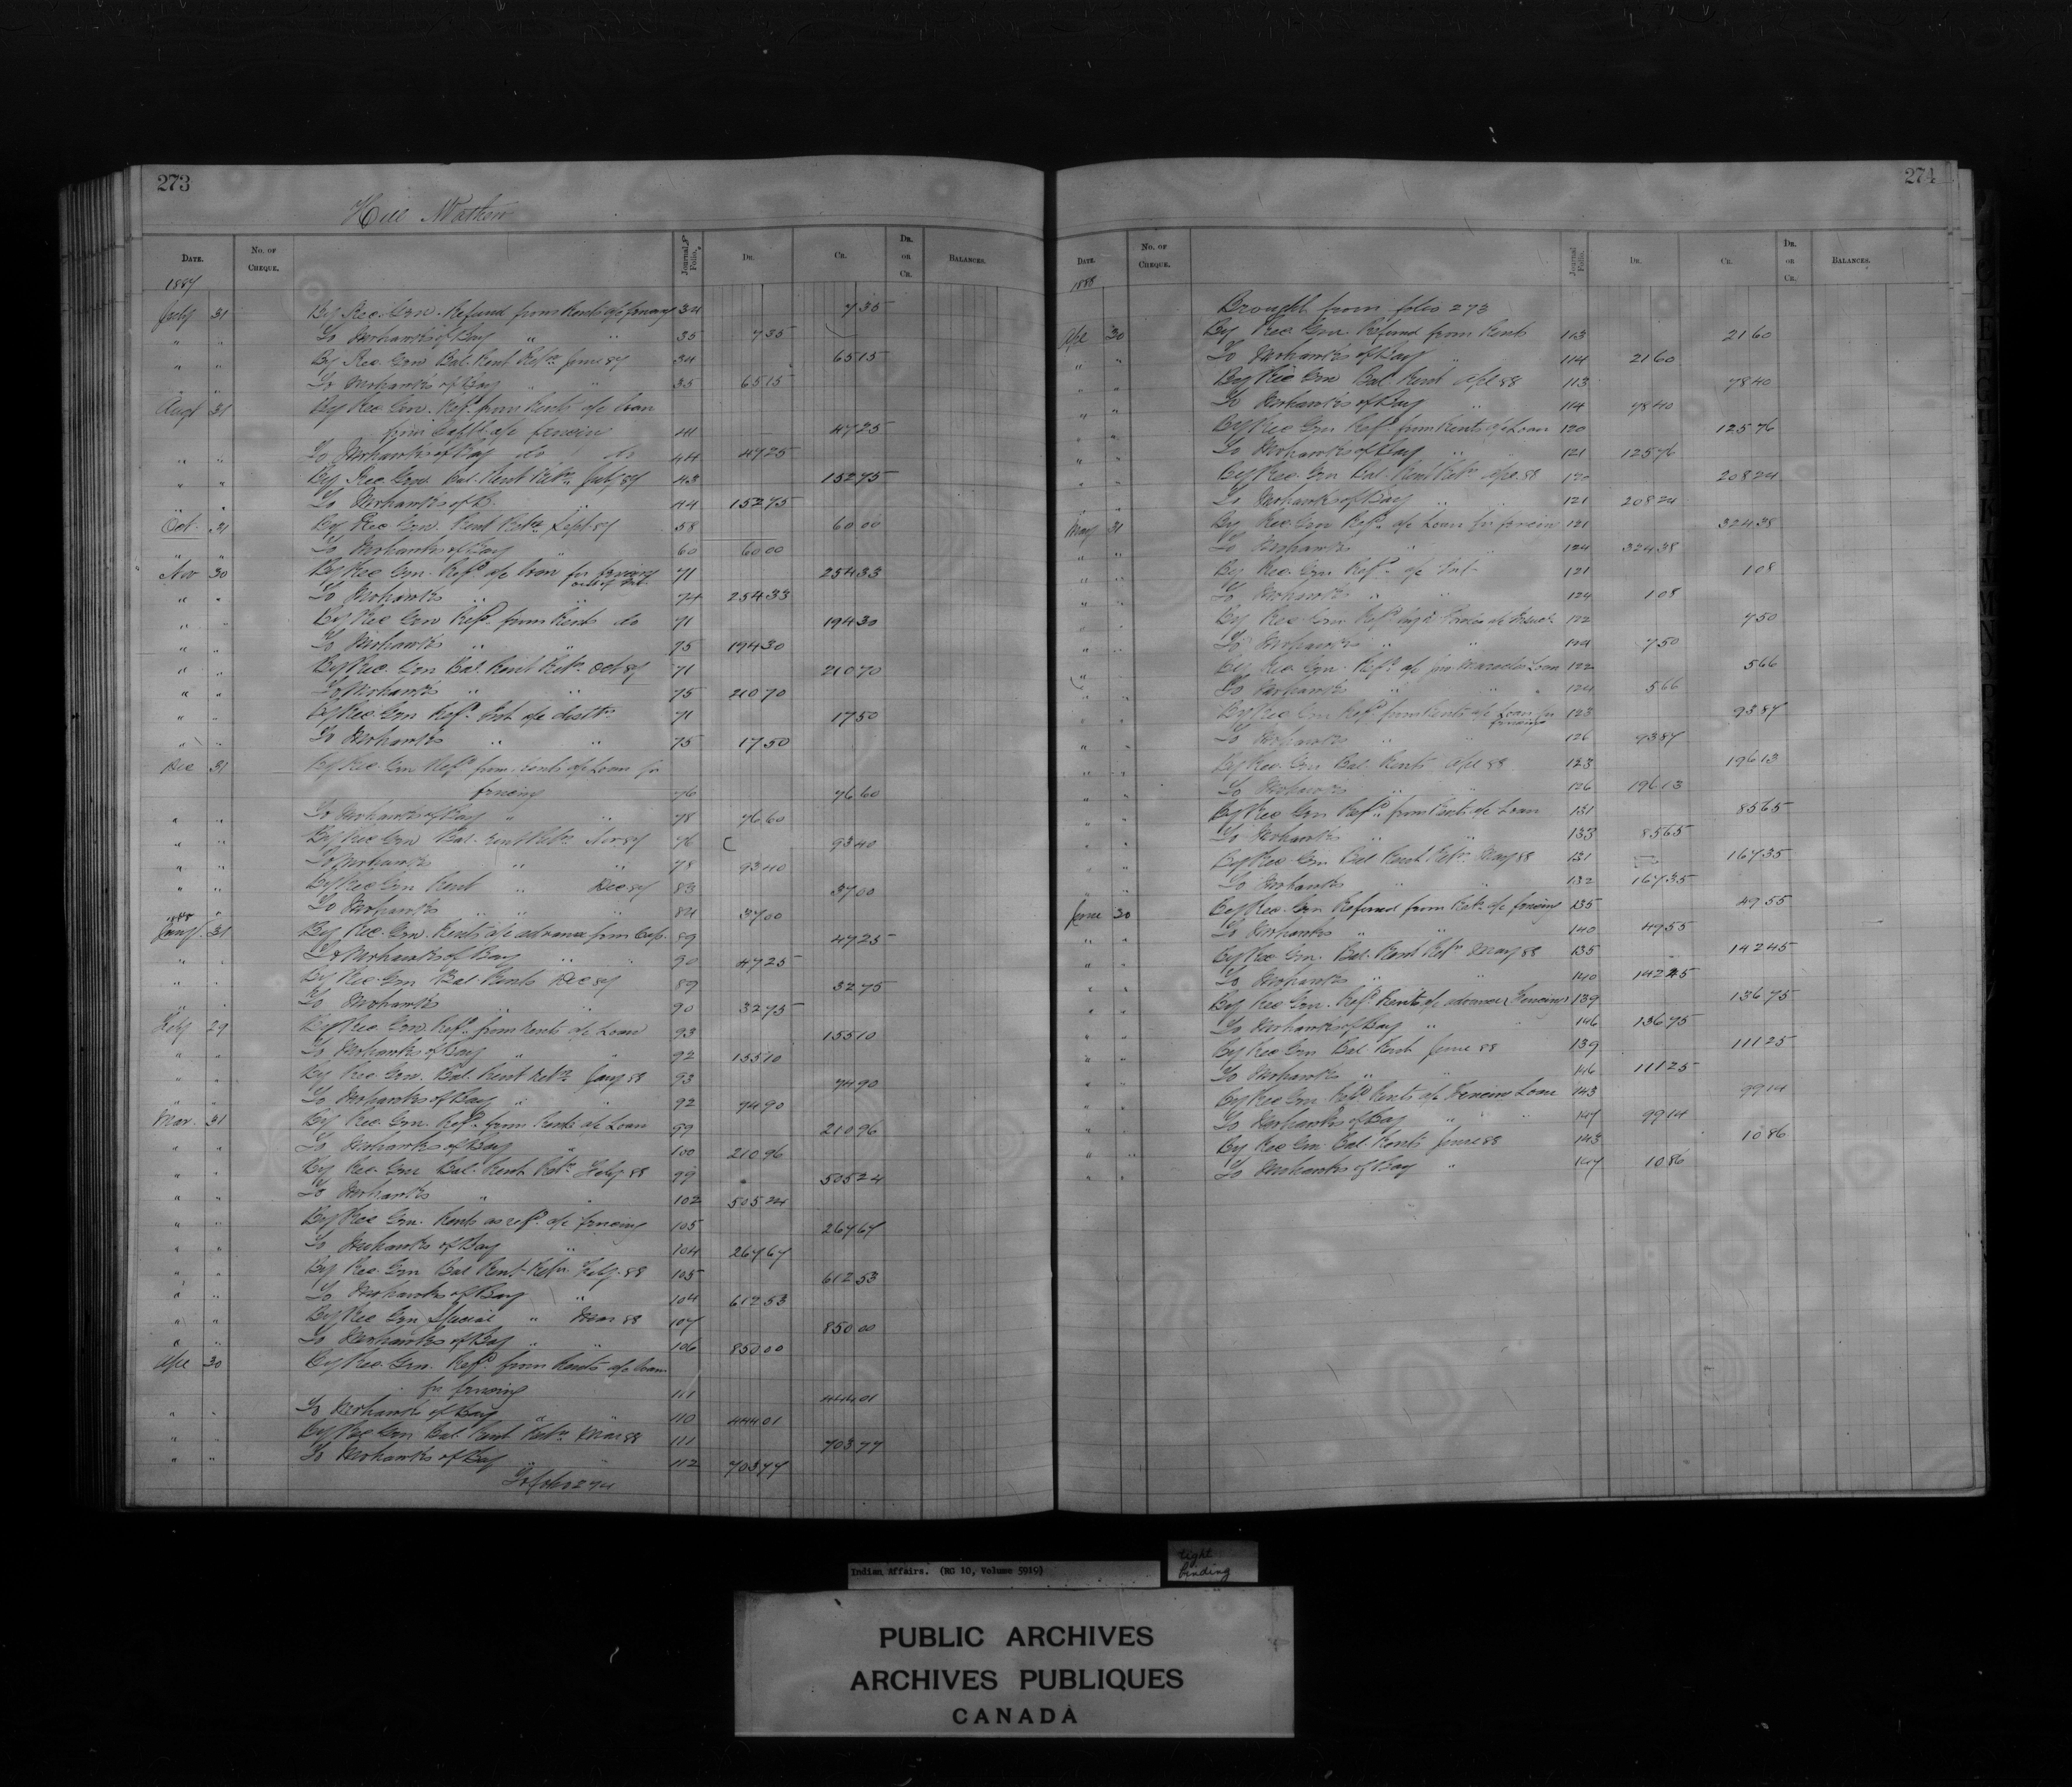 273
Hill Mathew
DATE. No. OF CHEQUE. Journal Folio. DR. CR. DR. OR CR. BALANCES.
1887
July 31 By Rec. Gen. Refund from Rents a/c fencing 34 7 35
" " To Mohawks of Bay " " 35 7 35
" " By Rec. Gen Bal. Rent Retn June 87 34 65 15
" " To Mohawks of Bay " " 35 65 15
Augt 31 By Rec Gen. Refd from Rents a/c Loan
from a/c fencing 41 47 25
" " To Mohawks of Bay do do 44 47 25
" " By Rec. Gen. Bal. Rent Retn July 87 43 152 75
" " To Mohawks of B. " 44 152 75
Oct. 31 By Rec Gen. Rent Retn Sept 87 58 60 00
" " To Mohawks of Bay " 60 60 00
Nov 30 By Rec Gen. Refd a/c Loan for fencing 71 254 33
" " To Mohawks " " 74 254 33
" " By Rec Gen Refd from Rents do 71 194 30
" " To Mohawks " " 75 194 30
" " By Rec. Gen Bal. Rent Retn Oct 87 71 210 70
" " To Mohawks " " 75 210 70
" " By Rec. Gen Refd Int a/c 71 17 50
" " To Mohawks " " 75 17 50
Dec 31 By Rec. Gen Refd from Rents a/c Loan for
fencing 76 76 60
" " To Mohawks of Bay " " 78 76 60
" " By Rec Gen Bal. Rent Retn Nov 87 76 93 40
" " To Mohawks " " 78 93 40
" " By Rec Gen Rent " Dec 87 83 37 00
" " To Mohawks " " " 84 37 00
1888
Jany. 31 By Rec. Gen. Rents a/c advance from Cap. 89 47 25
" " To Mohawks of Bay " " 90 47 25
" " By Rec Gen Bal. Rents Dec 87 89 32 75
" " To Mohawks " " 90 32 75
Feby 29 By Rec. Gen. Refd from Rents a/c Loan 93 155 10
" " To Mohawks of Bay " " 92 155 10
" " By Rec. Gen. Bal. Rent Retn Jany 88 93 74 90
" " To Mohawks of Bay " " 92 74 90
Mar. 31 By Rec. Gen. Refd from Rents a/c Loan 99 210 96
" " To Mohawks of Bay " 100 210 96
" " By Rec. Gen Bal. Rent Retn Feby 88 99 505 24
" " To Mohawks " " 102 505 24
" " By Rec Gen. Rents as refd a/c fencing 105 267 67
" " To Mohawks of Bay " 104 267 67
" " By Rec. Gen Bal Rent Retn Feby. 88 105 612 53
" " To Mohawks of Bay " 104 612 53
" " By Rec Gen Special " Mar 88 107 850 00
" " To Mohawks of Bay " " 106 850 00
Apl 30 By Rec. Gen. Refd from Rents a/c Loan
for fencing 111 444 01
" " To Mohawks of Bay " " 110 444 01
" " By Rec Gen Bal. Rent Retn Mar 88 111 703 77
" " To Mohawks of Bay " " 112 703 77
To folio 274
274
DATE. No. OF CHEQUE. Journal Folio. DR. CR. DR. OR CR. BALANCES.
1888
Brought from folio 273
Apl 30 By Rec. Gen. Refund from Rents 113 21 60
" " To Mohawks of Bay " 114 21 60
" " By Rec Gen Bal. Rent Apl 88 113 78 40
" " To Mohawks of Bay " 114 78 40
" " By Rec Gen Refd from Rents a/c Loan 120 125 76
" " To Mohawks of Bay " " 121 125 76
" " By Rec. Gen Bal. Rent Retn Apl 88 120 208 24
" " To Mohawks of Bay " " 121 208 24
May 31 By Rec. Gen Refd a/c Loan for fencing 121 324 38
" " To Mohawks " " 124 324 38
" " By Rec. Gen Refd a/c Int 121 1 08
" " To Mohawks " " 124 1 08
" " By Rec. Gen. Refd a/c 122 7 50
" " To Mohawks " " 124 7 50
" " By Rec Gen. Refd a/c Loan 122 5 66
" " To Mohawks " " 124 5 66
" " By Rec Gen Refd from Rents a/c Loan for fencing 123 93 87
" " To Mohawks " " 126 93 87
" " By Rec. Gen Bal. Rents Apl 88 123 196 13
" " To Mohawks " " 126 196 13
" " By Rec Gen Refd from Rents a/c Loan 131 85 65
" " To Mohawks " " 133 85 65
" " By Rec. Gen Bal Rent Retn May 88 131 167 35
" " To Mohawks " " 132 167 35
June 30 By Rec. Gen Refund from Retn a/c fencing 135 49 55
" " To Mohawks " " 140 49 55
" " By Rec Gen. Bal. Rent Retn May 88 135 142 45
" " To Mohawks " " 140 142 45
" " By Rec Gen. Refd Rents a/c advance (Fencing) 139 136 75
" " To Mohawks of Bay " " 146 136 75
" " By Rec Gen Bal. Rent June 88 139 111 25
" " To Mohawks " " 146 111 25
" " By Rec Gen Refd Rents a/c Fencing Loan 143 99 14
" " To Mohawks of Bay " " 147 99 14
" " By Rec Gen. Bal. Rents June 88 143 10 86
" " To Mohawks of Bay " 147 10 86
Indian Affairs. (RG 10, Volume 5919)
tight
binding
PUBLIC ARCHIVES
ARCHIVES PUBLIQUES
CANADA